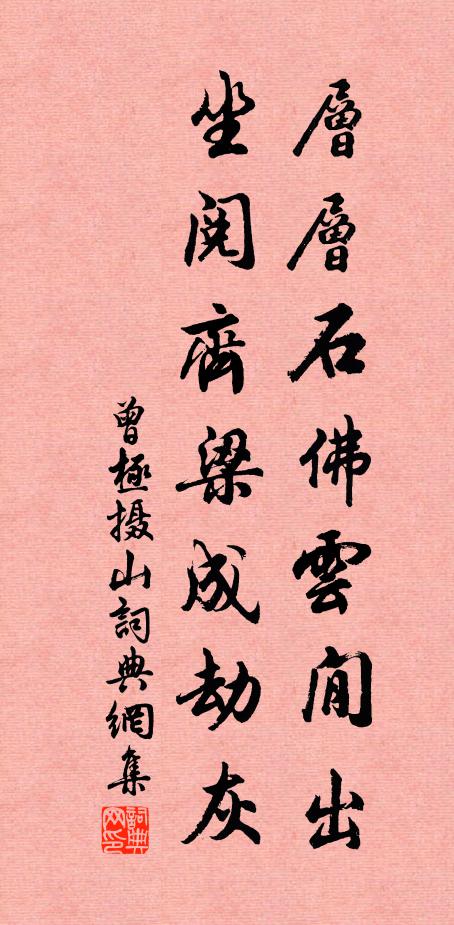 層層石佛雲間出
坐閱齊梁成劫灰
曾極摄山詞典網集
詞典网印